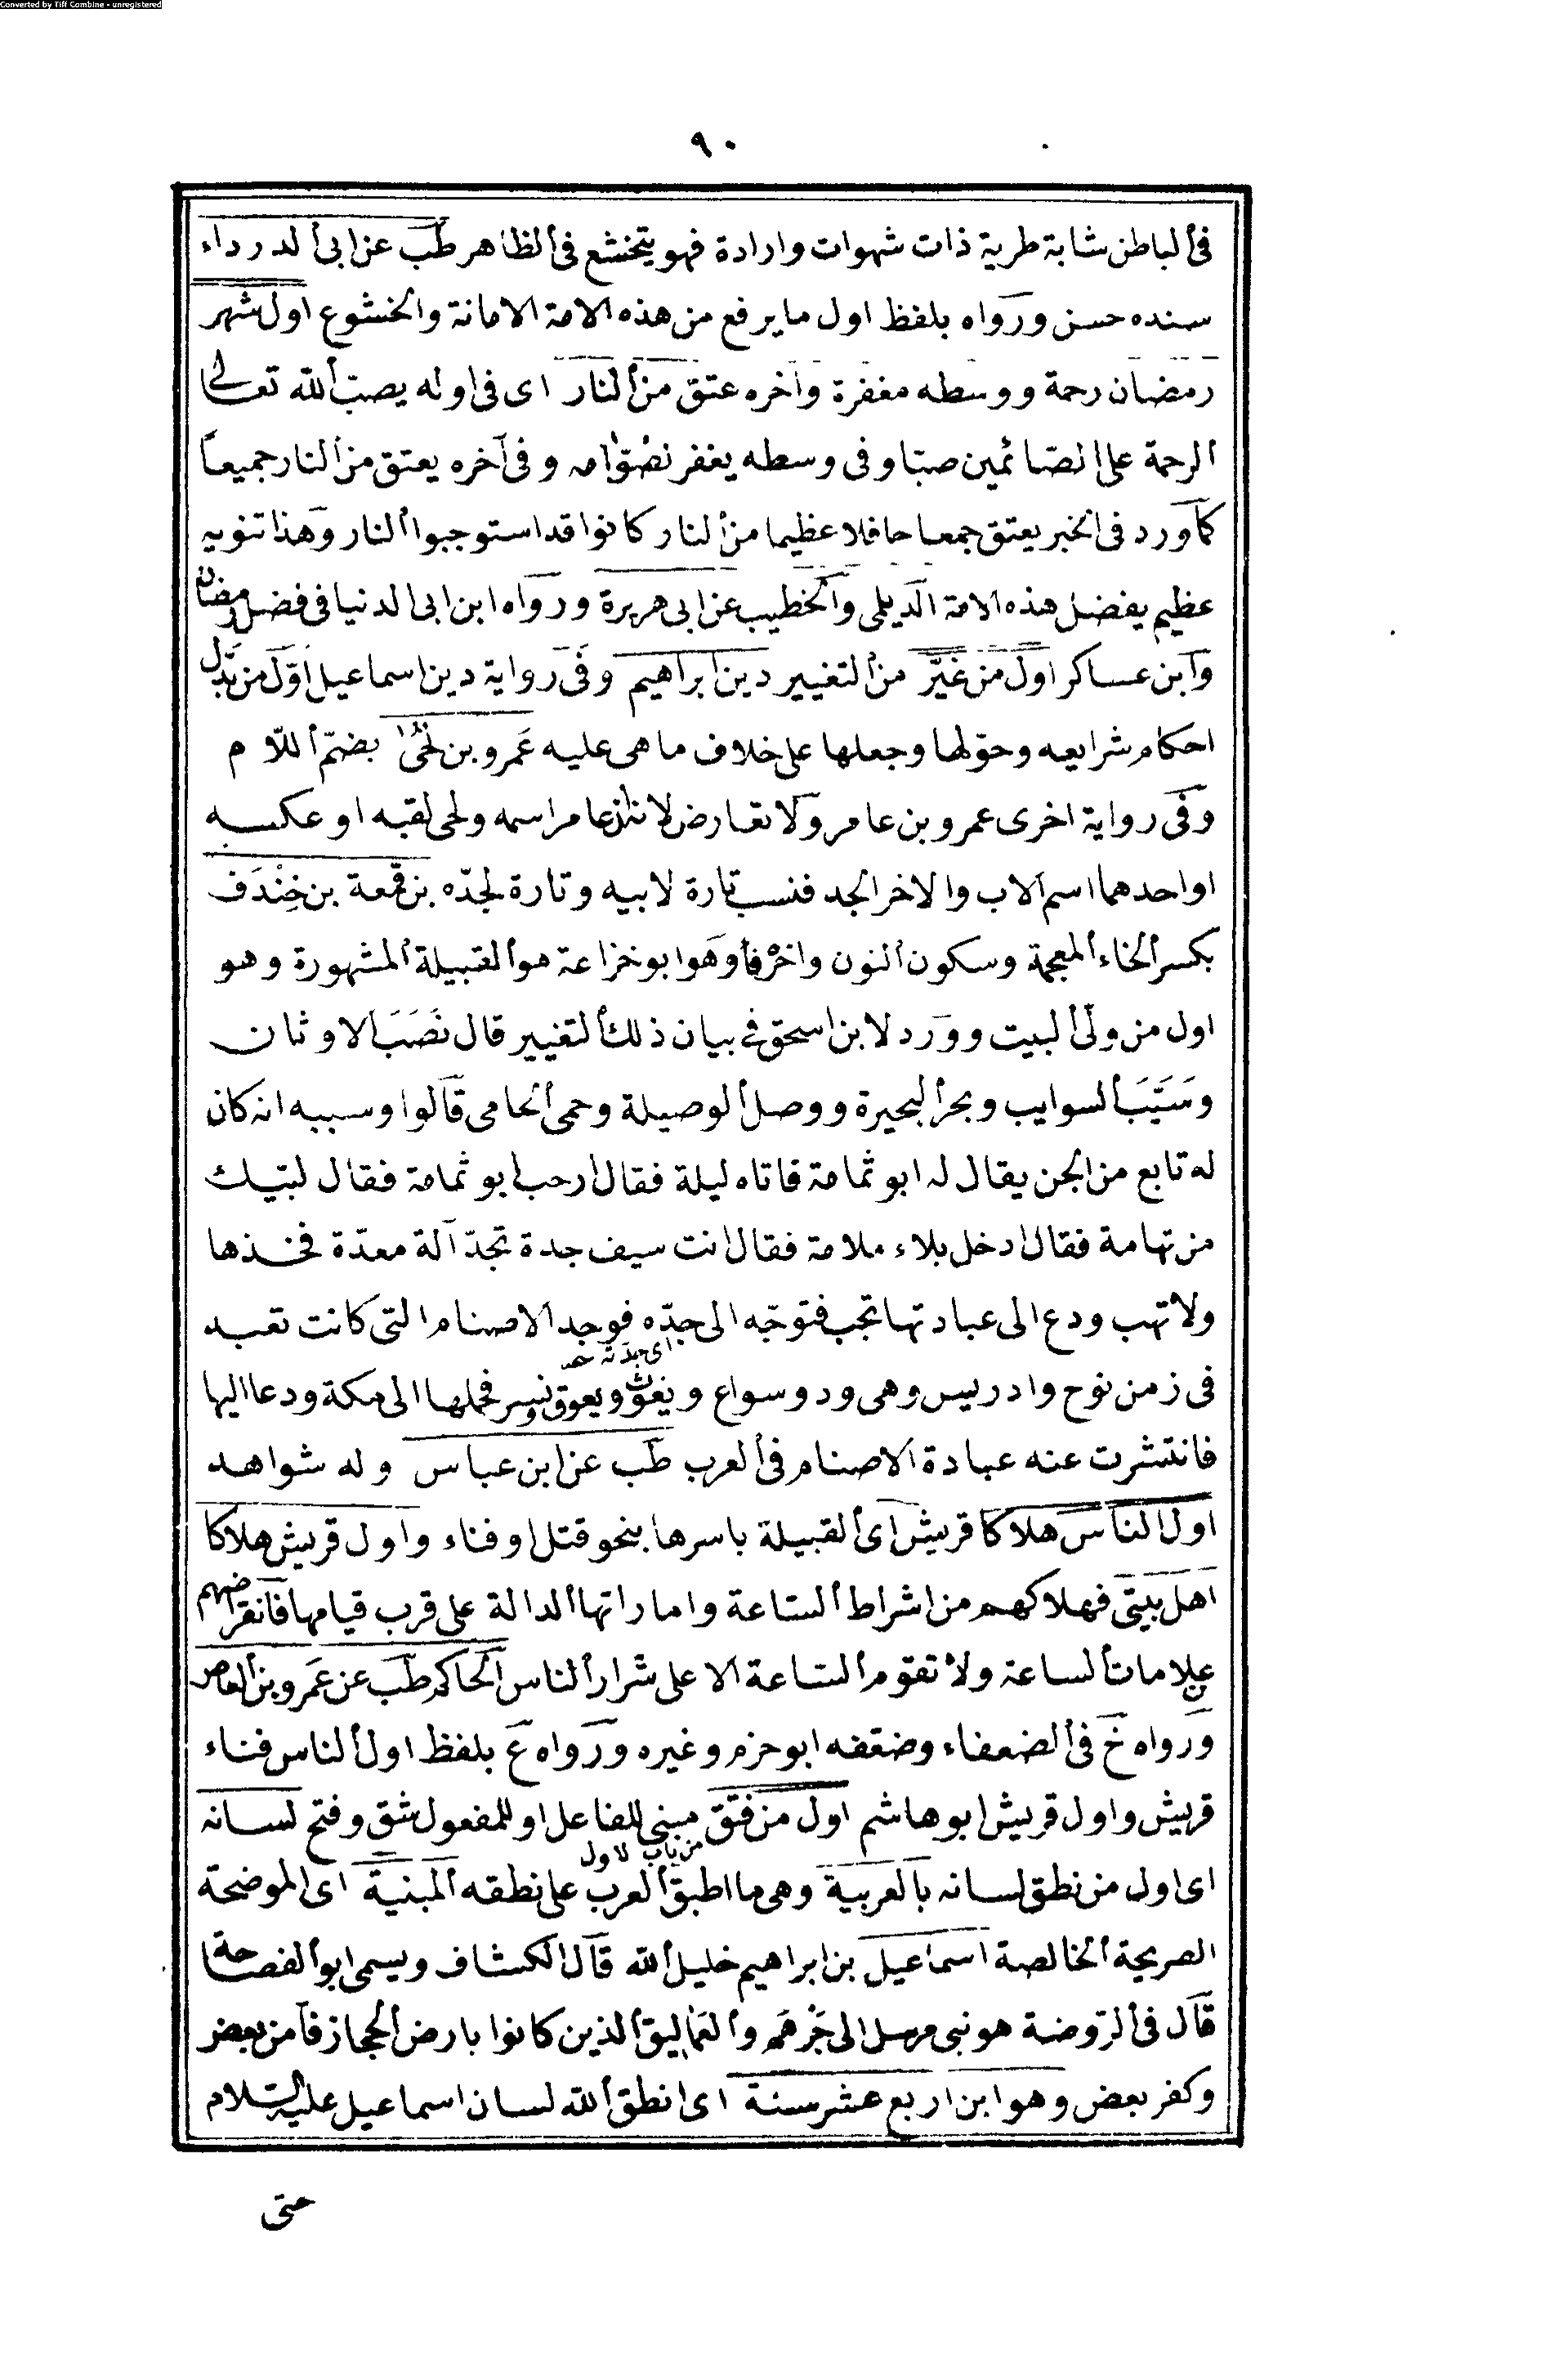 Converted by Tiff Combine - unregistered
٩٠
فى الباطن شابة طرية ذات شهوات وارادة فهو يتخشع فى الظاهر طب عن ابى الدرداء
سنده حسن ورواه بلفظ اول ما يرفع من هذه الامة الامانة والخشوع اول شهر
رمضان رحمة ووسطه مغفرة وآخره عتق من النار اى فى اوله يصب الله تعالى
الرحمة على الصائمين صبا وفى وسطه يغفر لصوامه وفى آخره يعتق من النار جميعا
كما ورد فى الخبر يعتق جمعا حافلا عظيما من النار كانوا قد استوجبوا النار وهذا تنويه
عظيم بفضل هذه الامة الديلمى والخطيب عن ابى هريرة ورواه ابن ابى الدنيا فى فضل رمضان
وابن عساكر اول من غيّر من التغيير دين ابراهيم وفى رواية دين اسماعيل اول من بدّل
احكام شرايعه وحولها وجعلها على خلاف ما هى عليه عَمرو بن لُحَىّ بضم اللام
وفى رواية اخرى عمرو بن عامر ولا تعارض لان عامر اسمه ولحى لقبه او عكسه
او احدهما اسم الاب والاخر الجد فنسب تارة لابيه وتارة لجده بن قمعة بن خِنْدَف
بكسر الخاء المعجمة وسكون النون واخره فا وهو ابو خزاعة هو القبيلة المشهورة وهو
اول من ولّى البيت وورد لابن اسحق فى بيان ذلك التغيير قال نَصَبَ الاوثان
وسَيَّبَ السوايب وبحر البحيرة ووصل الوصيلة وحمى الحامى قالوا وسببه انه كان
له تابع من الجن يقال له ابو ثمامة فاتاه ليلة فقال ارحب ابو ثمامة فقال لبيك
من تهامة فقال ادخل بلاء ملامة فقال انت سيف جدة تجد آلة معدّة فخذها
ولا تهب ودع الى عبادتها تجب فتوجّه الى جدّه فوجد الاصنام التى كانت تعبد
فى زمن نوح وادريس وهى ود وسواع ويغوث ويعوق ونسر فحملها الى مكة ودعا اليها
فانتشرت عنه عبادة الاصنام فى العرب طب عن ابن عباس وله شواهد
اول الناس هلاكا قريش اى القبيلة باسرها بنحو قتل او فناء واول قريش هلاكا
اهل بيتى فهلاكهم من اشراط الساعة واماراتها الدالة على قرب قيامها فانقراضهم
علامات الساعة ولا تقوم الساعة الا على شرار الناس الحاكم طب عن عمرو بن العاص
ورواه خ فى الضعفاء وضعفه ابو حزم وغيره ورواه ع بلفظ اول الناس فناء
قريش واول قريش ابو هاشم اول من فتق مبنى للفاعل او للمفعول شق وفتح لسانه
من باب الاول
اى اول من نطق لسانه بالعربية وهى ما اطبق العرب على نطقه المبنية اى الموضحة
الصريحة الخالصة اسماعيل بن ابراهيم خليل الله قال الكشاف ويسمى ابو الفصاحة
قال فى الروضة هو نبى مرسل الى جُرهَم والعماليق الذين كانوا بارض الحجاز فآمن بعض
وكفر بعض وهو ابن اربع عشر سنة اى انطق الله لسان اسماعيل عليه السلام
حتى